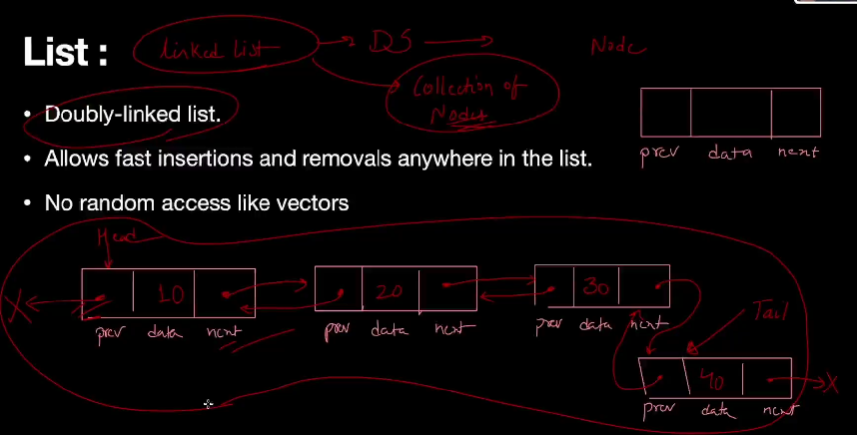 List :
linked list
DS
Node
Collection of
Nodes
• Doubly-linked list.
prev data next
• Allows fast insertions and removals anywhere in the list.
• No random access like vectors
Head
X
10
20
30
prev data next
prev data next
prev data next
Tail
40
X
prev data next